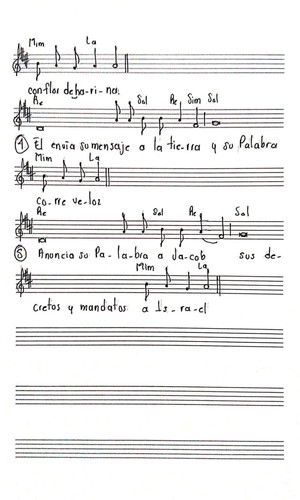 Mim La
con flor de ha-ri-na.
Re Sol Re Sim Sol
④ El envia su mensaje a la tie-rra y su Palabra
Mim La
co-rre ve-loz
Re Sol Re Sol
⑤ Anuncia su Pa-la-bra a Ja-cob sus de-
Mim La
cretos y mandatos a Is-ra-el